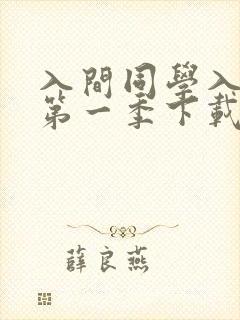 入間同學入
第一季下載
薛良燕